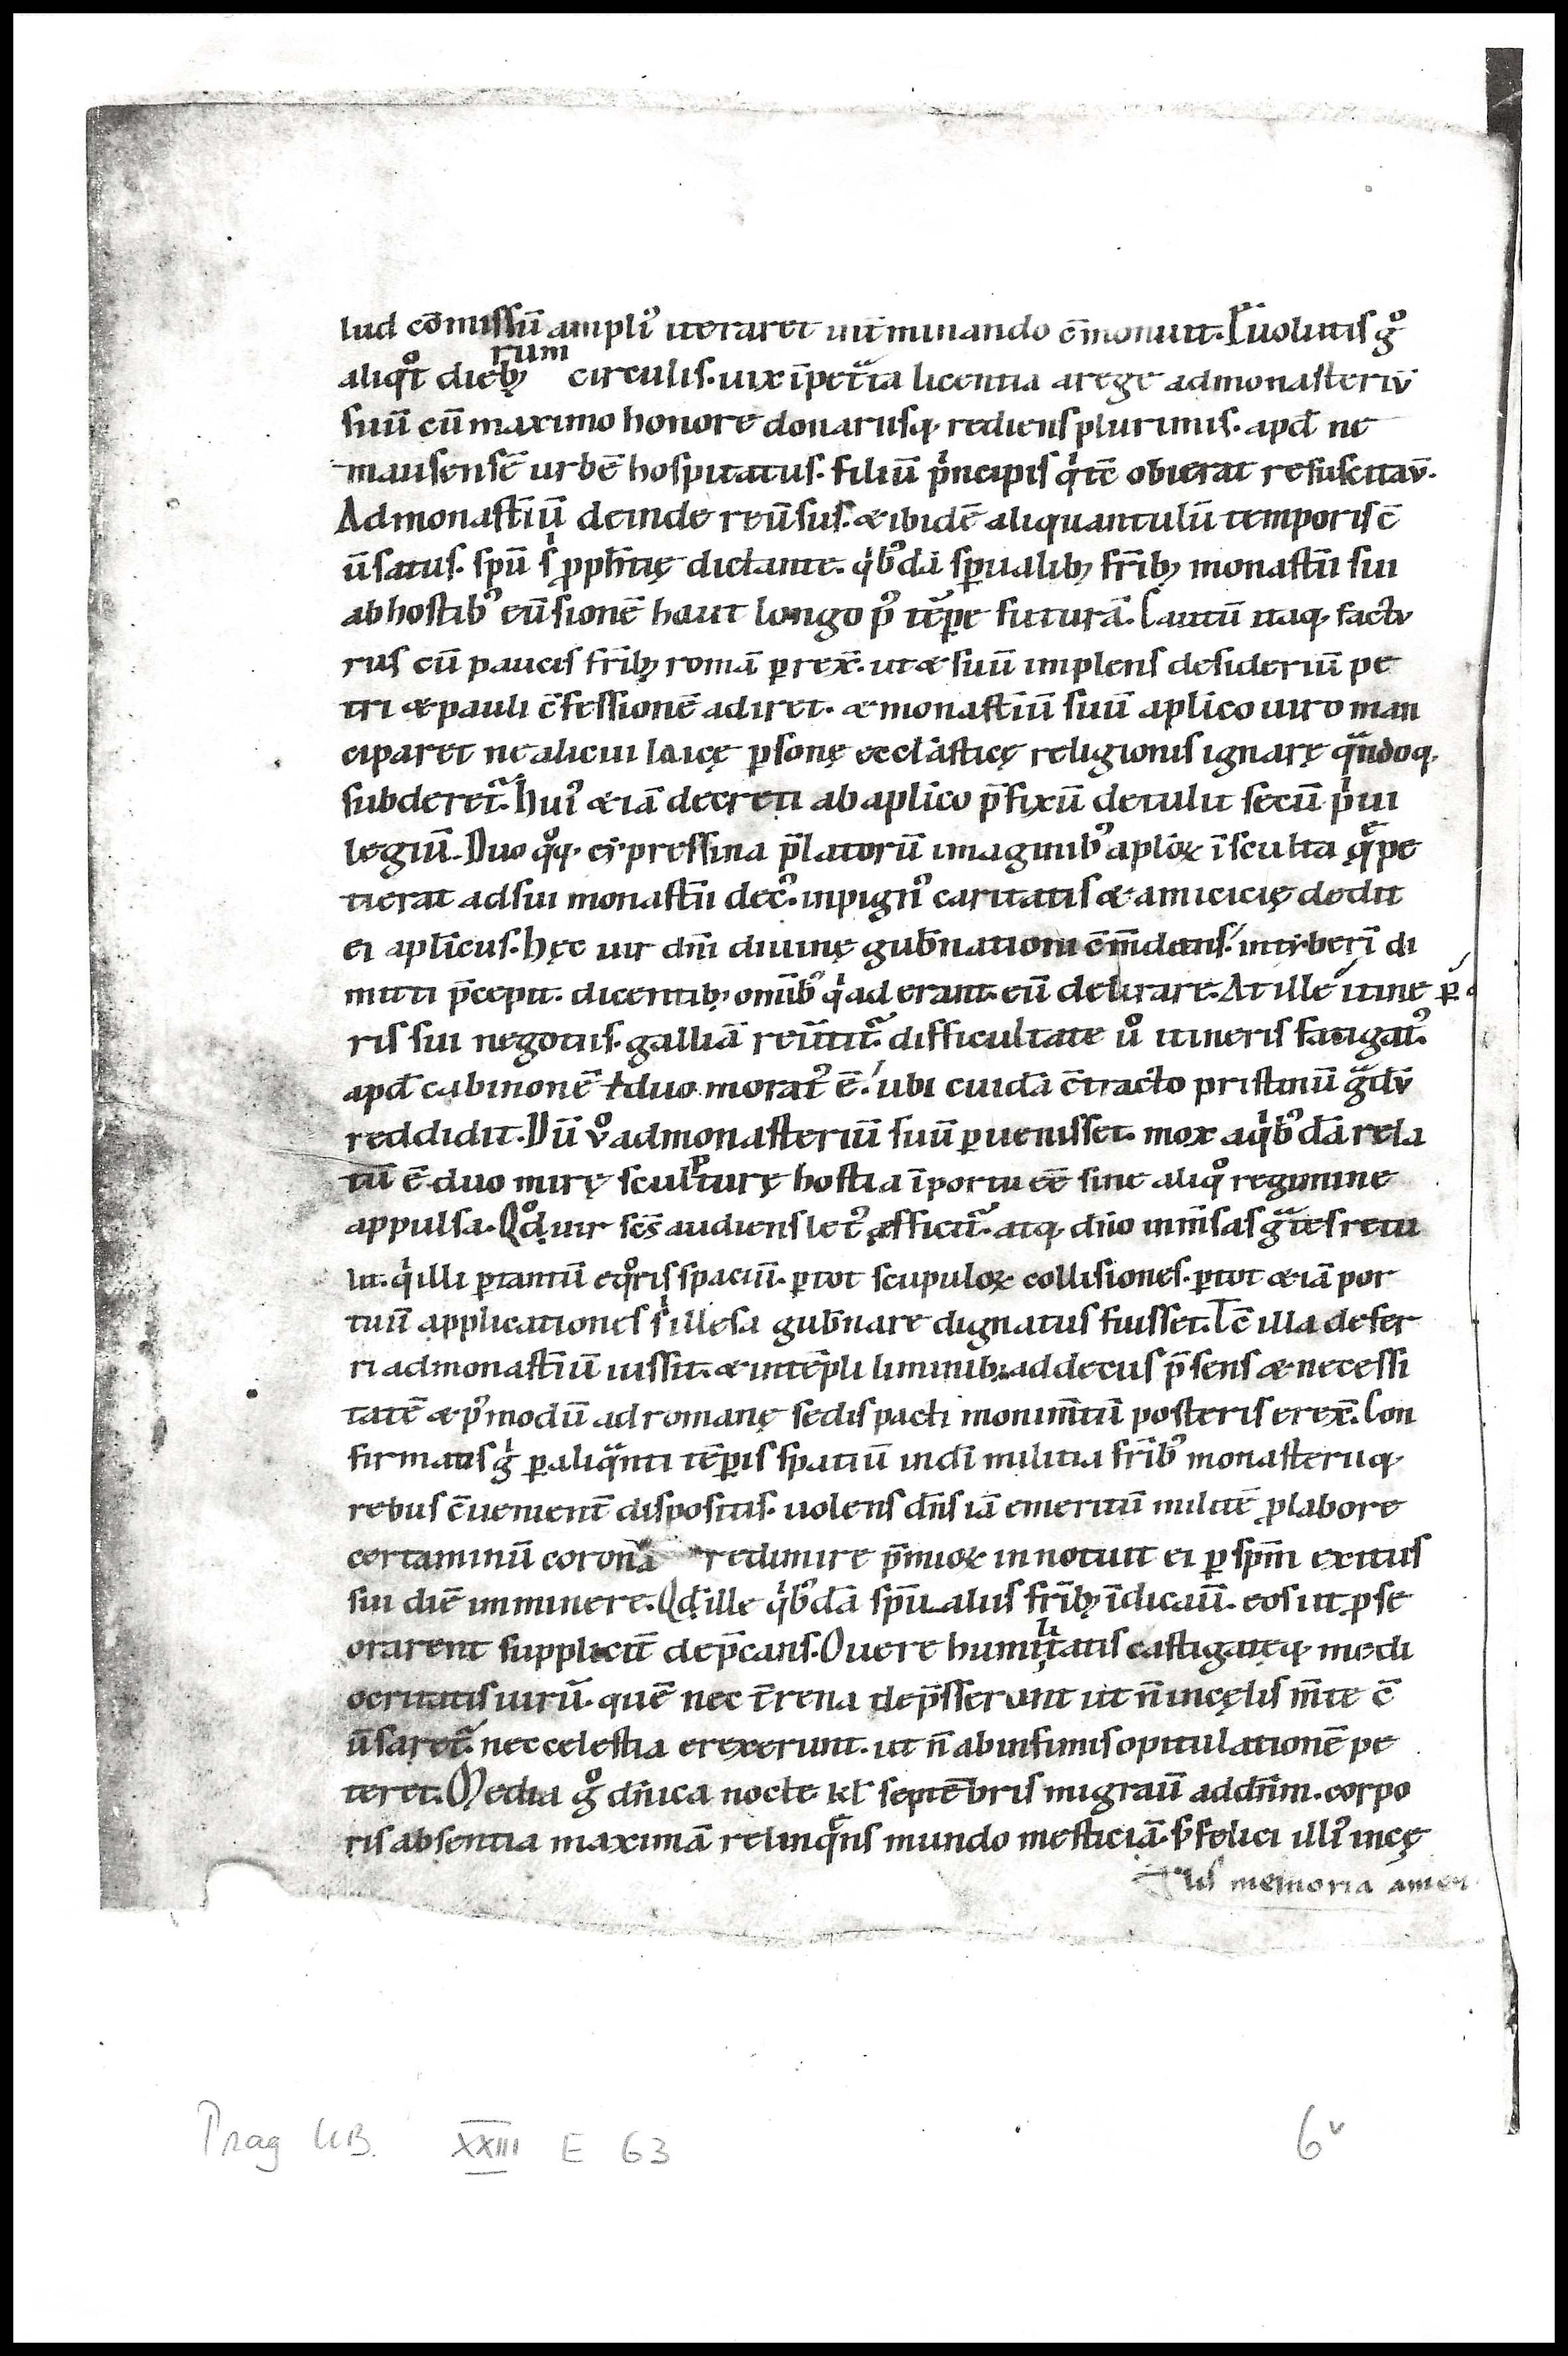 lud cōmissū ampliꝰ iteraret uit̄ minando c̄monuit. Euolutis gͦ
aliqͦt dieb; rum circulis. uix īpetͣta licentia a rege ad monasteriū
suū cū maximo honore donariisq; rediens plurimis. apd̄ ne
mausensē urbē hospitatus. filiū pͥncipis qͥ tc̄ obierat resuscitau̅.
Ad monast̄iū deinde reu̅sus. & ibidē aliquantulū temporis c̄
u̅satus. spū sͥ ꝓph̄tię dictante. qͥbꝰdā sp̄ualib; fr̄ib; monast̄ii sui
ab hostibꝰ eu̅sionē haut longo pꝰ tēꝑe futurā. Cautū itaq; factu
rus cū paucis fr̄ib; romā ꝑrex̄. ut & suū implens desideriū pe
tri & pauli c̄fessionē adiret. & monast̄iū suū aplico uiro man
ciparet ne alicui laicę ꝑsonę eccl̄asticę religionis ignarę qͣndoq;
subderet᷑. huiꝰ & iā decreti ab aplico p̄fixū detulit secū pͥui
legiū. Duo qͦq; cip̄ressina p̄latorū imaginibꝰ aploꝝ īsculta q̨ͣ pe
tierat ad sui monast̄ii decꝰ. in pignꝰ caritatis & amicicię dedit
ei ap̄licus. hęc uir dn̄i diuinę gub̄nationi c̄m̄dans. in tyberī di
mitti p̄cepit. dicentib; omīb; qͥ ad erant. eū delirare. At ille itine ꝑ
ris sui negotiis. galliā reu̅tit᷑. difficultate uͦ itineris fatigatꝰ.
apd̄ cabinonē tͥduo moratꝰ ē. ubi cuidā c̄tracto pristinū gͣdū
reddidit. Dū uͦ ad monasteriū suū ꝑuenisset. mox a qͥbꝰdā rela
tū ē. duo mirę sculpturę hostia ī portu eē̄ sine aliqͦ regimine
appulsa. Qͦd uir sc̄s audiens letꝰ efficit᷑. atq; dn̄o inm̄sas gͣtes retu
lit. qͥ illi ꝑ tantū eqͦris spaciū. ꝑ tot scupuloꝝ collisiones. ꝑ tot & iā por
tuū applicationes sͥ illesa gub̄nare dignatus fuisset. Tc̄ illa defer
ri ad monast̄iū iussit. & in tēpli liminib; ad decus p̄sens & necessi
tatē & pꝰmodū ad romanę sedis pacti monim̄tū posteris erex̄. Con
firmatis gͥ ꝑ aliqͣnti tēꝑis spatiū in dī militia fr̄ibꝰ monasteriiq;
rebus c̄uenient̄ dispositis. uolens dn̄s iā emeritū militē ꝓ labore
certaminū coronā redimire p̄mioꝝ innotuit ei ꝑ spm̄ exitus
sui diē imminere. Qd̄ ille qͥbꝰdā spū alius fr̄ib; īdicau̅. eos ut ꝓ se
orarent supplicit̄ dep̄cans. O uere humilitatis castigateq; medi
ocritatis uirū. quē nec t̄rena dep̄sserunt ut n̄ in cęlis m̄te c̄
u̅saret᷑. nec celestia erexerunt. ut n̄ ab infimis opitulationē pe
teret. Media gͦ dn̄ica nocte kl̄ septēbris migrau̅ ad dn̄m. corpo
ris absentia maximā relinqͣns mundo mesticiā. sꝫ felici illiꝰ in cę
tus memoria amen
Prag UB. XXIII E 63 6v